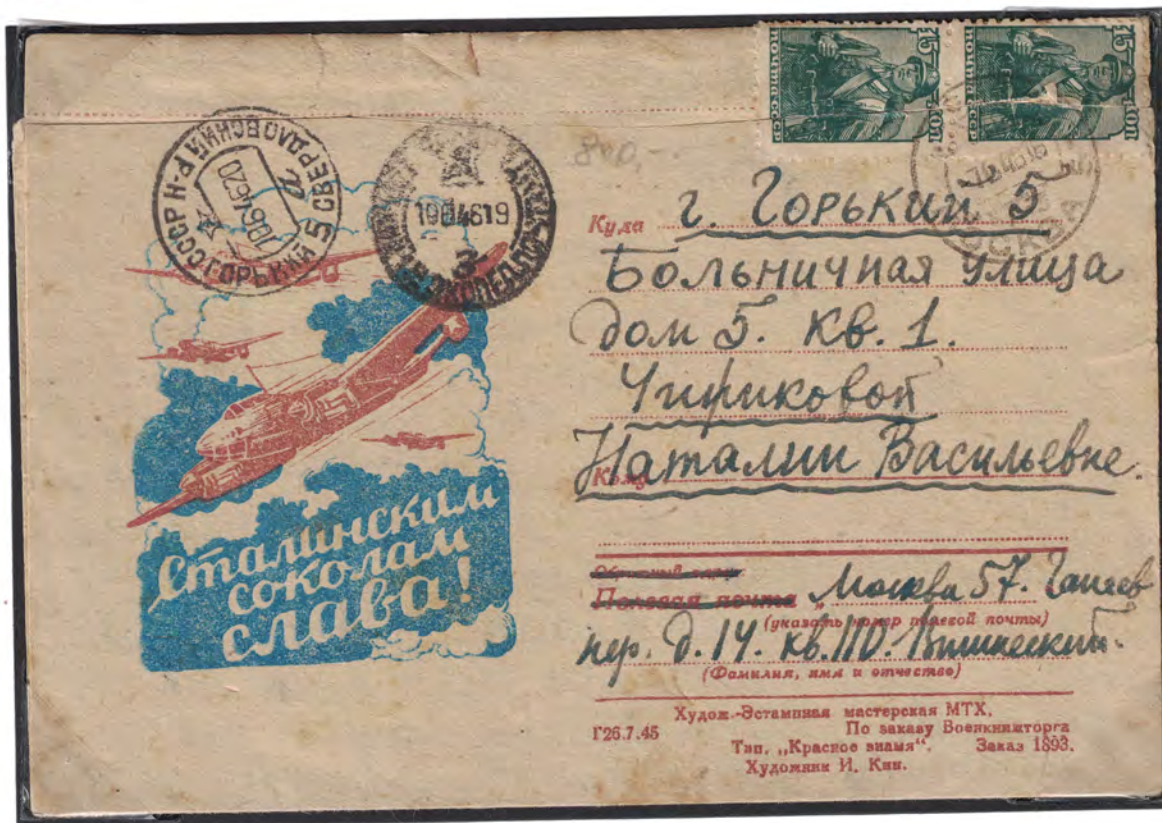 15 КОП
ПОЧТА СССР
15 КОП
ПОЧТА СССР
СССР ГОРЬКИЙ 5 СВЕРДЛОВСКИЙ Р-Н
19 46 19
3
800,-
МОСКВА
Куда г. Горький 5
Больничная улица
дом 5. кв. 1.
Чириковой
Кому Наталии Васильевне.
Сталинским
соколам
слава!
Обратный адрес:
Полевая почта „Москва 57. Гапеев
(указать номер полевой почты)
пер. д. 14. кв. 110.
(Фамилия, имя и отчество)
Г26.7.45
Худож.-Эстампная мастерская МТХ.
По заказу Военкнижторга
Тип. „Красное знамя“. Заказ 1893.
Художник И. Кин.